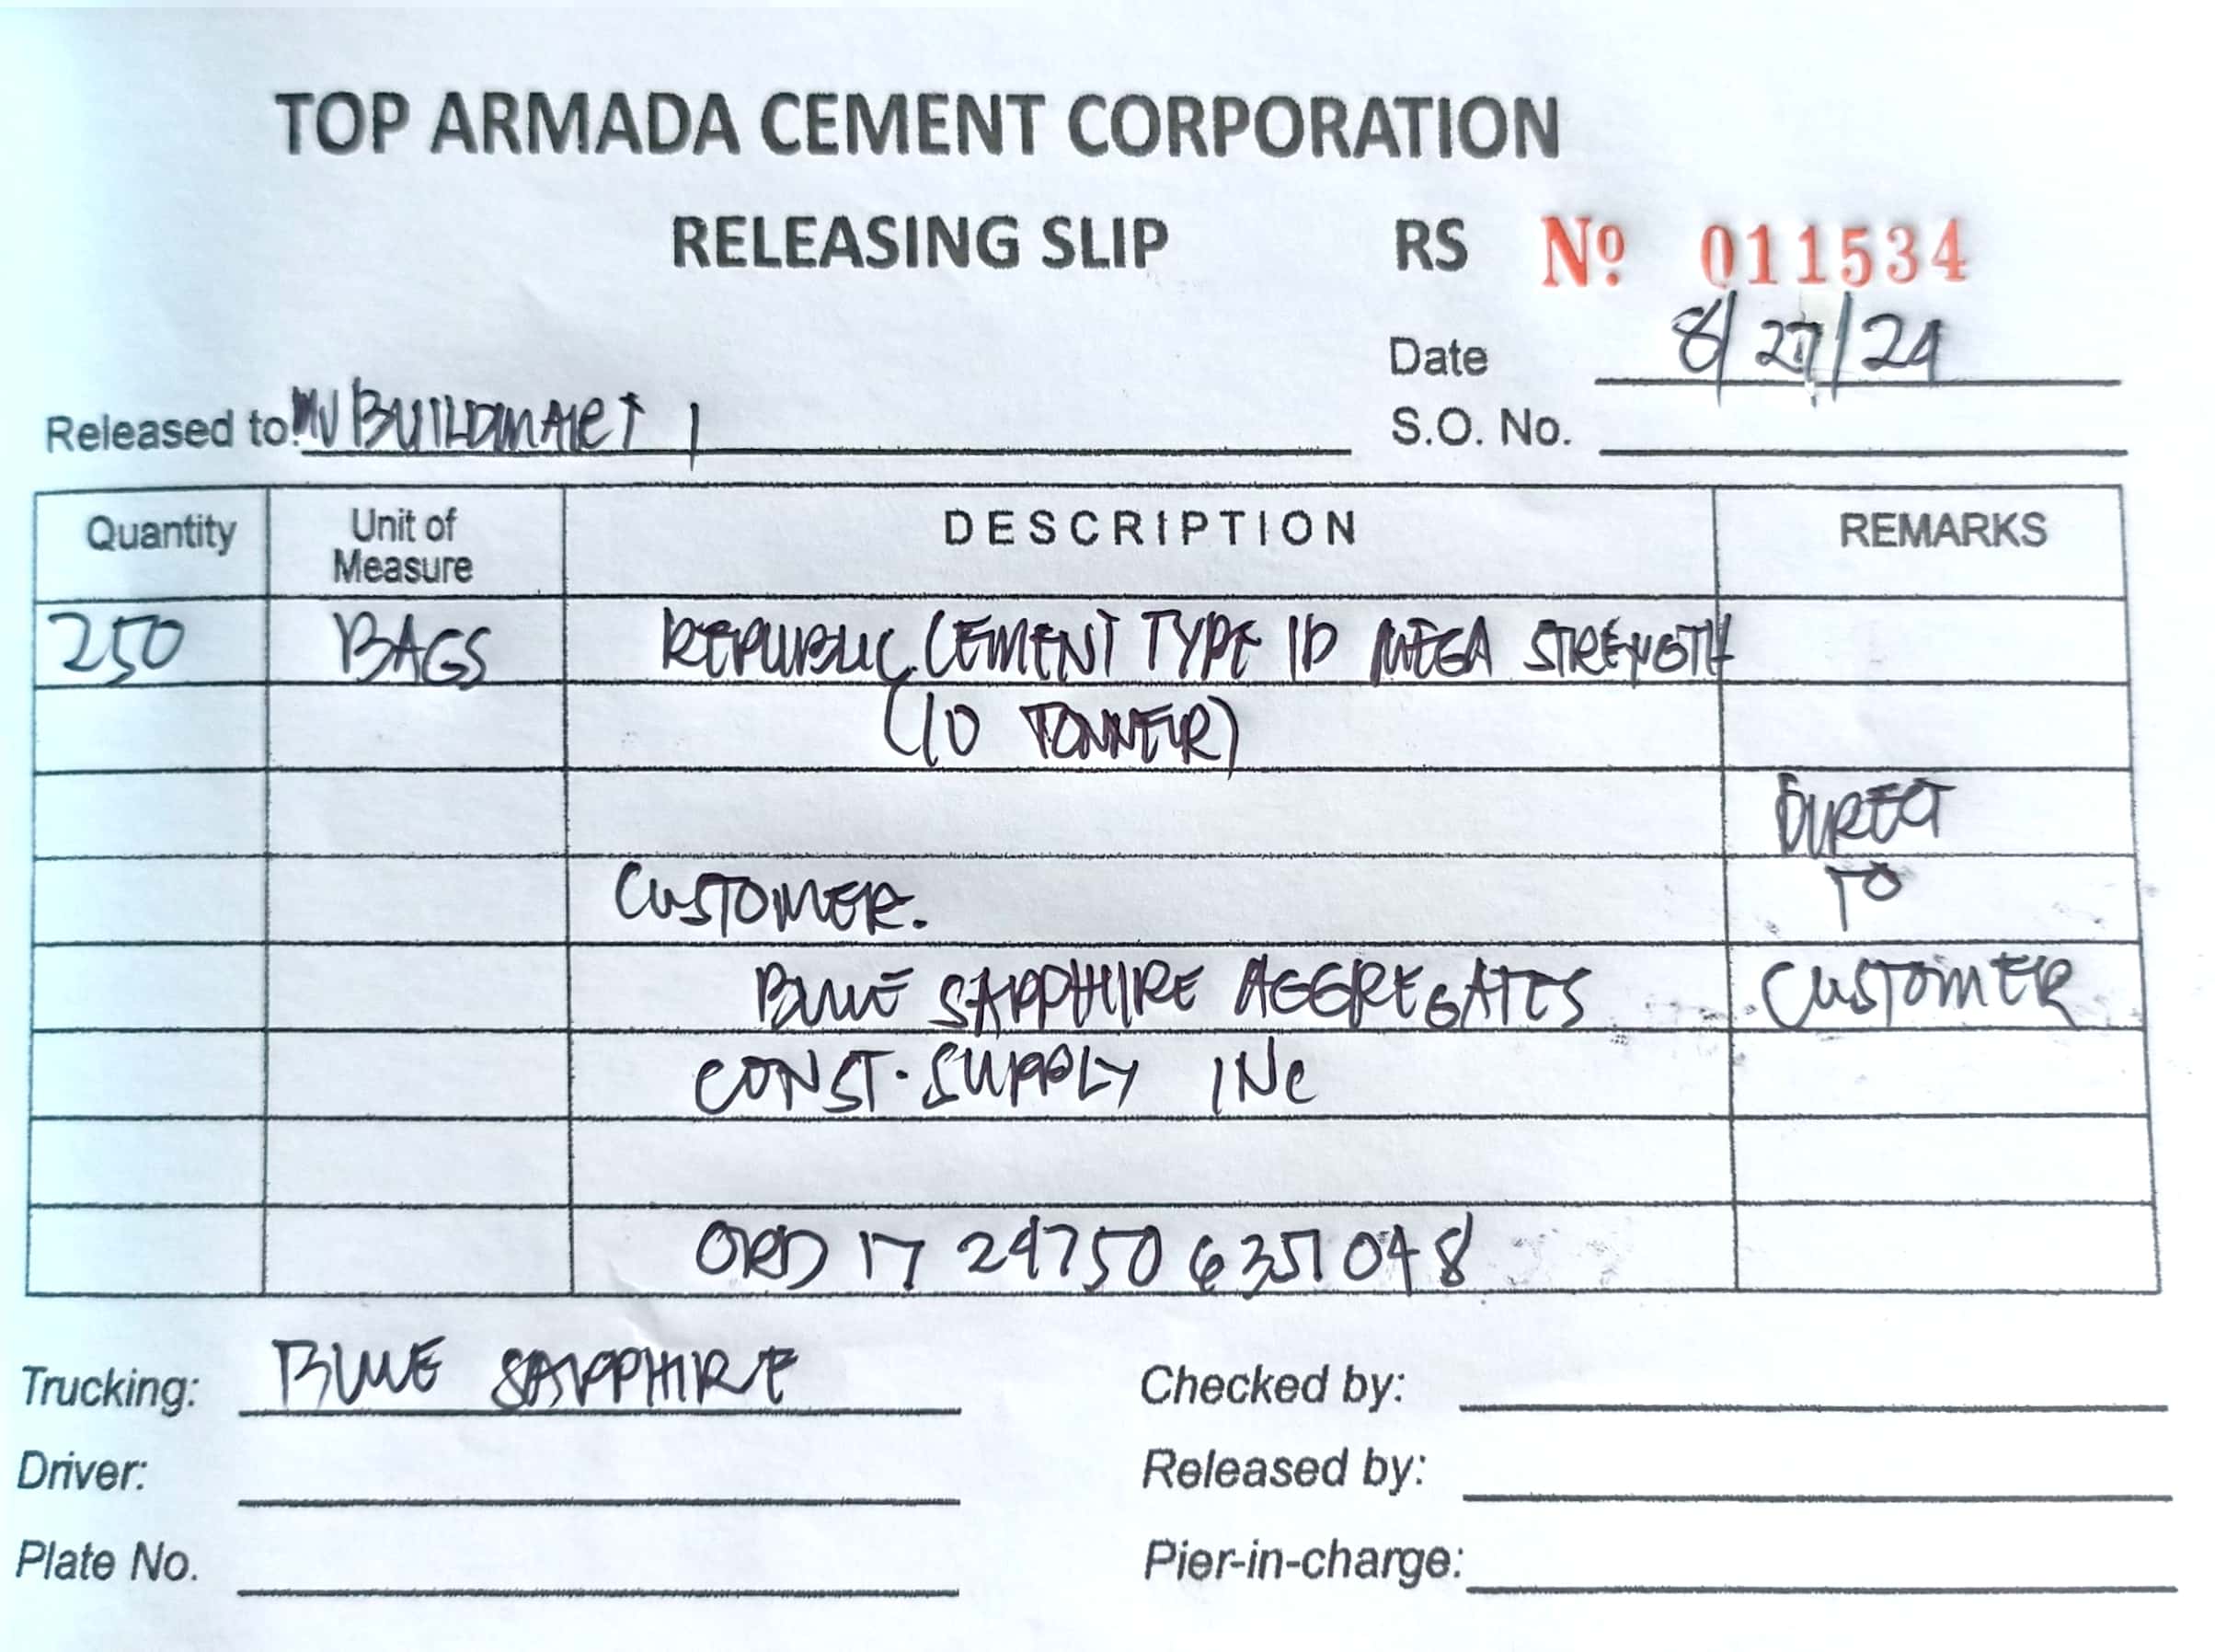 TOP ARMADA CEMENT CORPORATION
RELEASING SLIP RS Nº 011534
Date 8/27/24
Released to: MV BUILDMART 1
S.O. No.
Quantity Unit of Measure DESCRIPTION REMARKS
250 BAGS REPUBLIC CEMENT TYPE 1D MEGA STRENGTH
(10 TONNER)
DIRECT
CUSTOMER. TO
BLUE SAPPHIRE AGGREGATES CUSTOMER
CONST. SUPPLY INC
ORD 17 24750 6351 048
Trucking: BLUE SAPPHIRE Checked by:
Driver: Released by:
Plate No. Pier-in-charge: